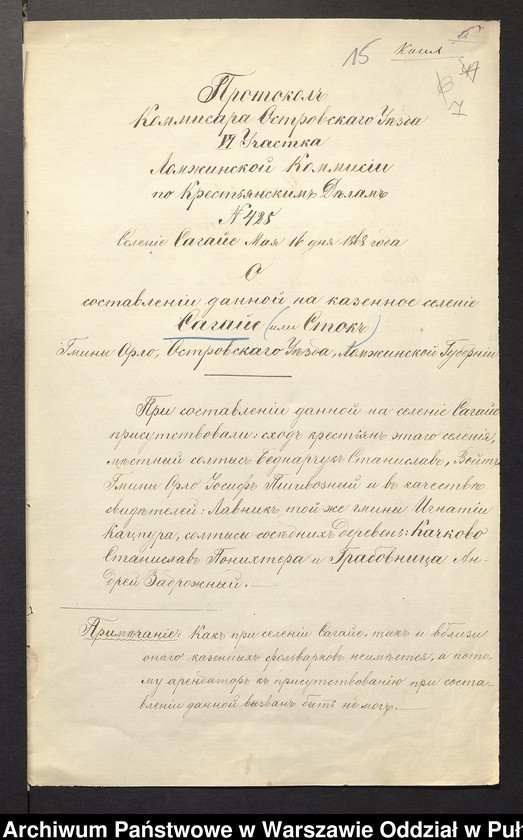 15 Касс
Протоколъ
Коммисара Островскаго Уѣзда
VI Участка
Ломжинской Коммисіи
по Крестьянскимъ Дѣламъ
№ 428
Селеніе Сагайе Мая 16 дня 1868 года
О
составленіи данной на казенное селеніе
Сагайе (или Стокъ)
Гмины Орло, Островскаго Уѣзда, Ломжинской Губерніи
При составленіи данной на селеніе Сагайе
присутствовали: сходъ крестьянъ этаго селенія,
мѣстный солтысъ Беднарчукъ Станиславъ, Войтъ
Гмины Орло Іосифъ Пшевозный и въ качествѣ
свидѣтелей: Лавникъ той же гмины Игнатій
Кацпура, солтысы сосѣднихъ деревень: Качково
Станиславъ Понихтера и Грабовница Ан-
дрей Задрожный. —
Примѣчаніе: Какъ при селеніи Сагайе, такъ и вблизи
онаго казенныхъ фольварковъ неимѣется, а пото-
му арендаторъ къ присутствованію при соста-
вленіи данной вызванъ быть не могъ. —
Archiwum Państwowe w Warszawie Oddział w Puł